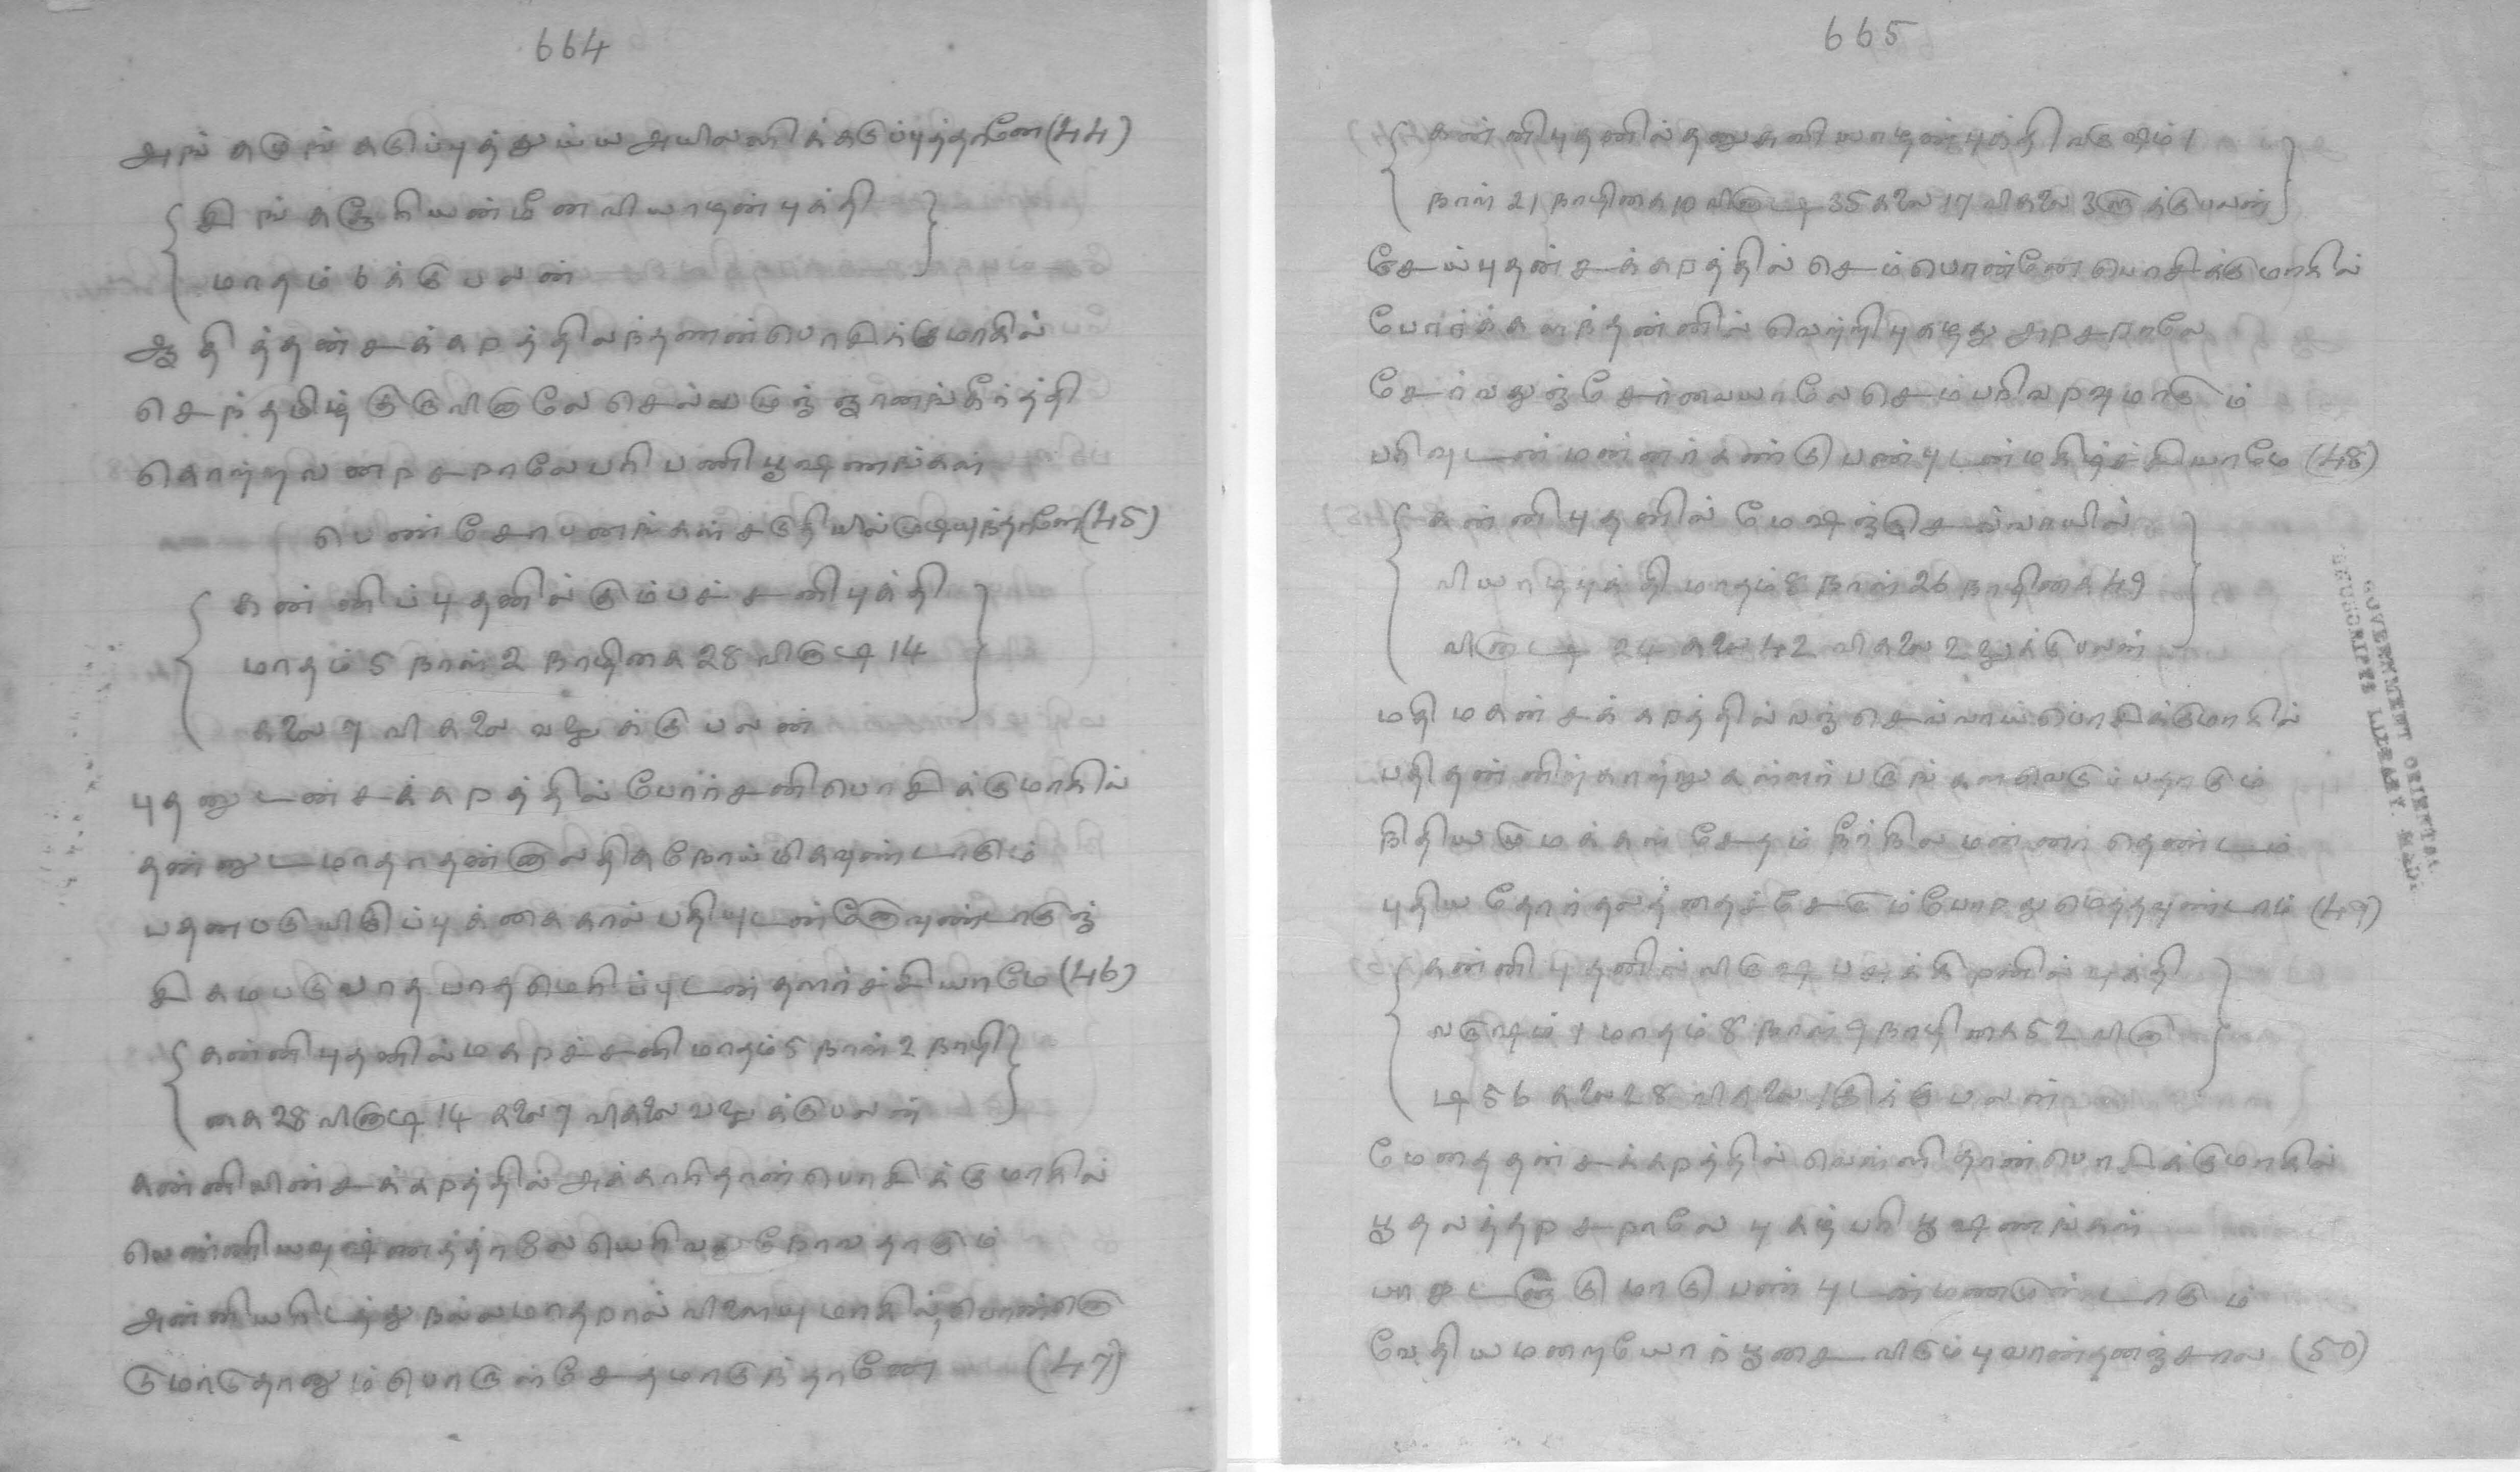 664
அங் கமுங் கடுப்புத்துய்ய அயிலவிக்கடுப்புந்தானே (44)
சிங்கஞேரியன்மீனவியாழன்புக்தி
மாதம் 6 க்கு பலன்
ஆதித்தன்சக்கறத்திலந்தணன்பொசிக்குமாகில்
செந்தமிழ் குருவினாலே செல்வமுஞ் ஞானங்கீர்த்தி
கொற்றவனறசறாலேபரிபணிபூஷணங்கள்
பெண்சோபனங்கள்சடுதியில்முடியுந்தானே (45)
கன்னிப்புதனில்கும்பச்சனிபுக்தி
மாதம் 5 நாள் 2 நாழிகை 28 வினாடி 14
கலை 7 விகலை வழுக்கு பலன்
புதனுடன்சக்கறத்தில் போர்சனிபொசிக்குமாகில்
தன்னுடமாதாதன்னாலதிகநோய்மிகவுண்டாகும்
பதனபடுயிடுப்புக்கைகால் பதியுடன்னோவுண்டாகுஞ்
சிகமபடுவாதபாதமெரிப்புடன்தளர்ச்சியாமே (46)
கன்னிபுதனில்மகறச்சனிமாதம் 5 நாள் 2 நாழி
கை 28 வினாடி 14 கலை 7 விகலை வழுக்குபலன்
கன்னியின்சக்கறத்தில் அக்காரிதான்பொசிக்குமாகில்
வெண்ணியவுஷ்ணத்தாலேயெரிவதுநோவதாகும்
அன்னியரிடத்து நல்லமாதறால் விளையுமாகில், பொன்னு
டுமாடுதானும்பொருள்சேதமாகுந்தானே (47)
665
கன்னிபுதனில்தனுசுவியாழன்புக்தி வருஷம் 1
நாள் 21 நாழிகை 10 வினாடி 35 கலை 17 விகலை 3ளுக்குபலன்
சேய்புதன்சக்கறத்தில் செம்பொன்னேபொசிக்குமாகில்
போர்க்களந்தன்னில் வெற்றிபுகழது அறசறாலே
சேர்வதுஞ்சேர்வையாலேசெம்பரிவறவுமாகும்
பரிவுடன்மன்னர்கண்டுபண்புடன்மகிழ்ச்சியாமே (48)
கன்னிபுதனில் மேஷஞ்செவ்வாயில்
வியாழபுக்தி மாதம் 8 நாள் 26 நாழிகை 49
வினாடி 24 கலை 42 விகலை 2 துக்குபலன்
மதிமகன்சக்கறத்தில் வந்செவ்வாய்பொசிக்குமாகில்
பதிதன்னிற்காற்றுகள்ளர்படுங்களவெடுப்பதாகும்
நிதியமுமக்கள் சேதம் நீர்நிலமன்னர் தெண்டம்
புதியதோர்தலத்தைச்சேரும்போறதுமெத்தவுண்டாம் (49)
கன்னிபுதனில் விருஷபசுக்கிறனில்புக்தி
வருஷம் 1 மாதம் 8 நாள் 9 நாழிகை 52 வினா
டி 56 கலை 28 விகலை 1 றுக்கு பலன்
மேதைதன்சக்கறத்தில் வெள்ளிதான்பொசிக்குமாகில்
பூதலத்தறசறாலே புகழ்பரிபூஷணங்கள்
பாசுடனாடுமாடு பண்புடன்மணமுண்டாகும்
வேதியமறையோர்பூசைவிரும்புவான்தனஞ்சால (50)
GOVERNMENT ORIENTAL
MANUSCRIPTS LIBRARY, MAD